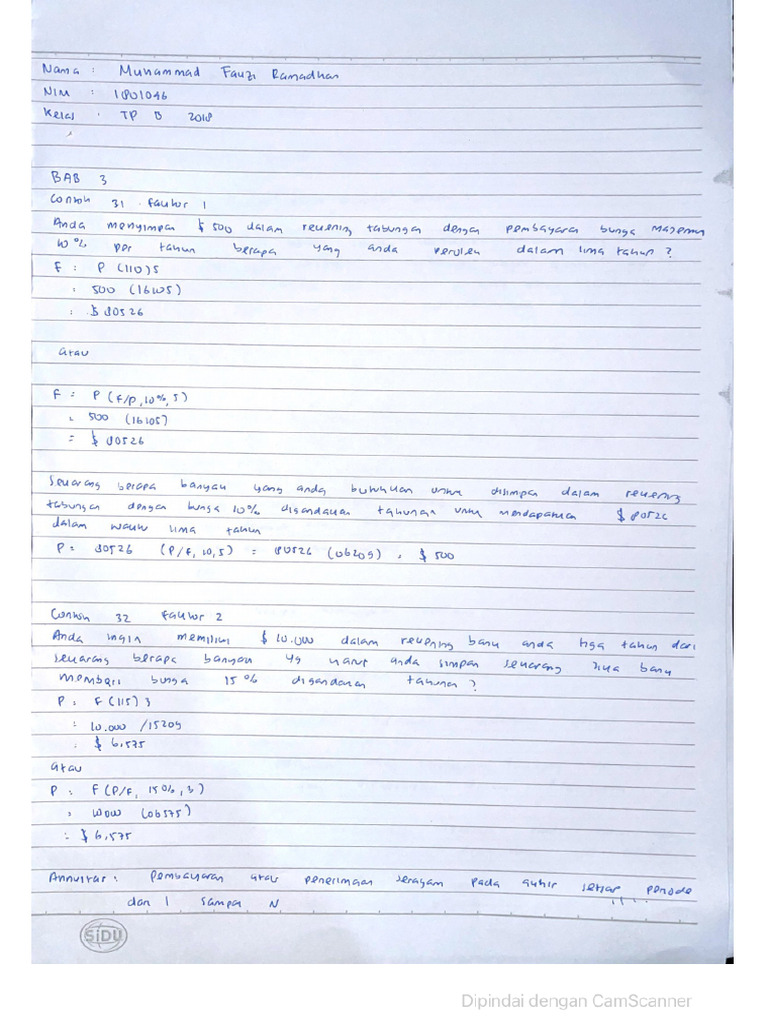 Nama : Muhammad Fauzi Ramadhan
NIM : 1801046
Kelas : TP B 2018
BAB 3
Contoh 31 faktor 1
Anda menyimpan $ 500 dalam rekening tabungan dengan pembayara bunga majemu
10 % per tahun berapa yang anda peroleh dalam lima tahun ?
F : P (110) 5
: 500 (16105)
: $ 80526
atau
F : P (F/P, 10%, 5)
: 500 (16105)
= $ 80526
Sekarang berapa banyak yang anda butuhkan untuk disimpan dalam rekening
tabungan dengan bunga 10% digandakan tahunan untuk mendapatkan $ 80526
dalam waktu lima tahun
P = 80526 (P/F, 10, 5) = 80526 (06209) = $ 500
Contoh 32 faktor 2
Anda ingin memiliki $ 10.000 dalam rekening bank anda tiga tahun dari
sekarang berapa banyak yg harus anda simpan sekarang jika bank
memberi bunga 15 % digandakan tahunan ?
P : F (115) 3
: 10.000 / 15209
: $ 6,575
atau
P : F (P/F, 15%, 3)
: 10000 (06575)
= $ 6,575
Annuitas : Pembayaran atau penerimaan seragam pada akhir setiap periode
dari 1 sampai N
SiDU
Dipindai dengan CamScanner